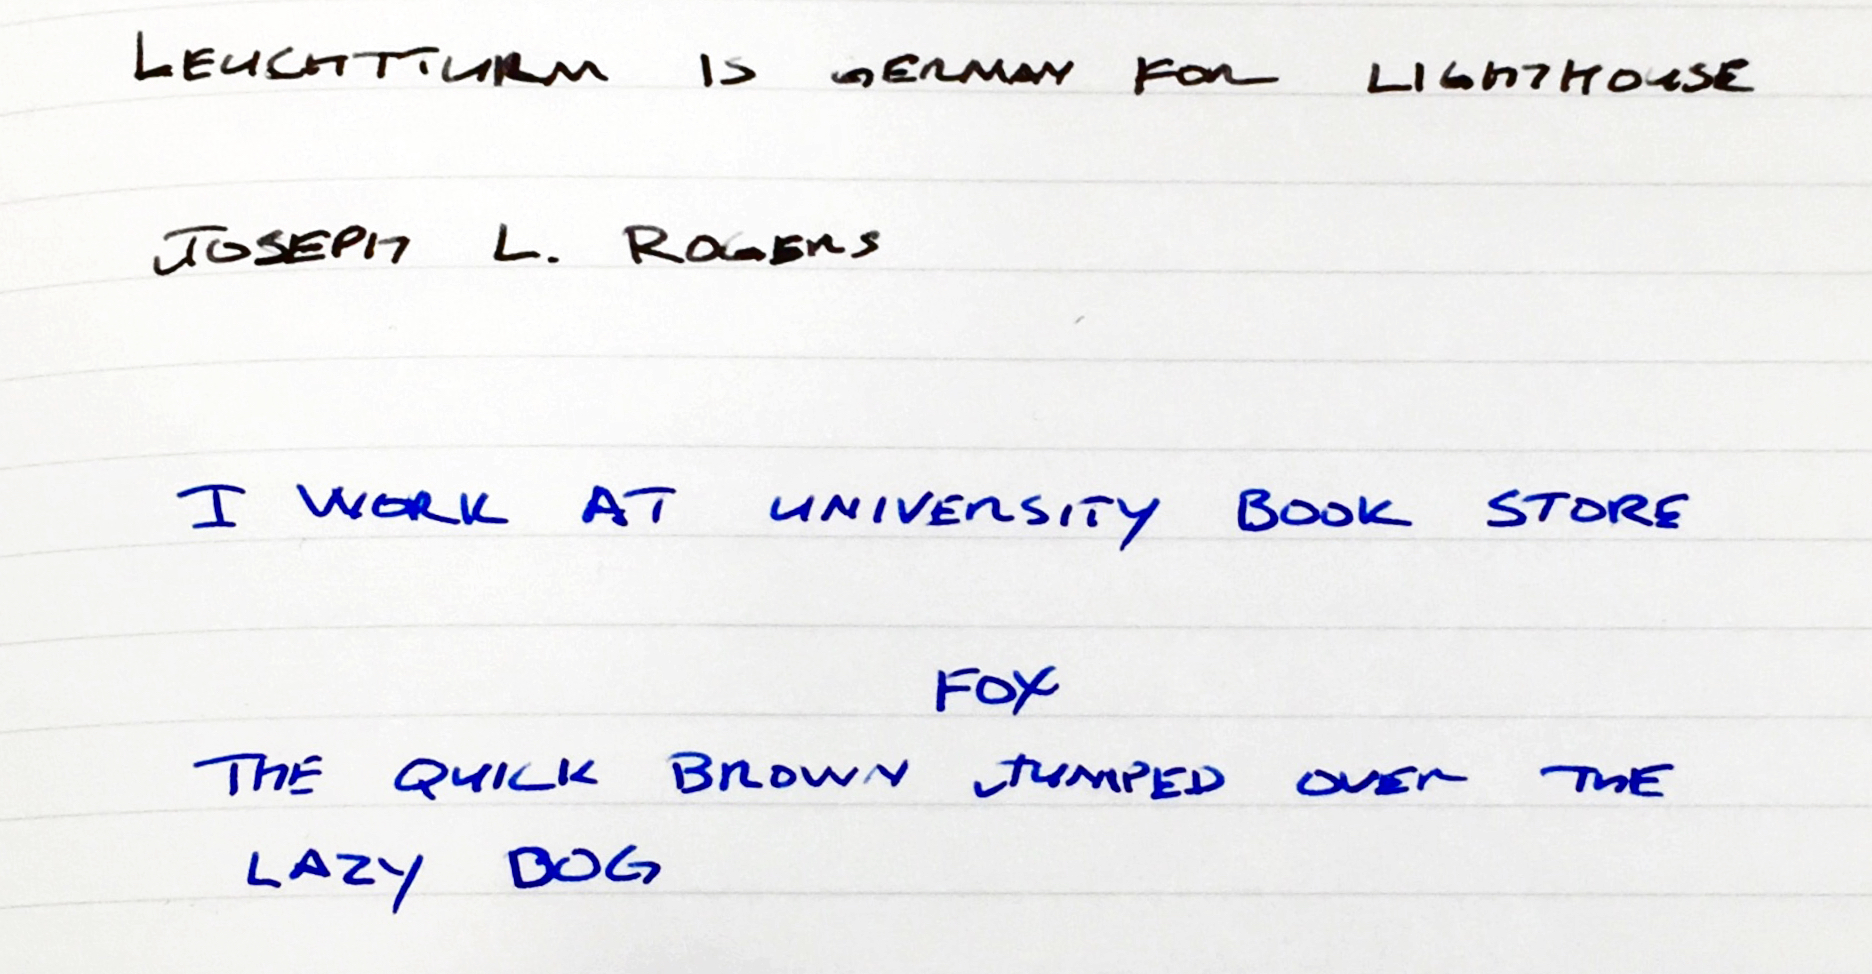 LEUCHTTURM IS GERMAN FOR LIGHTHOUSE
JOSEPH L. ROGERS
I WORK AT UNIVERSITY BOOK STORE
FOX
THE QUICK BROWN JUMPED OVER THE
LAZY DOG